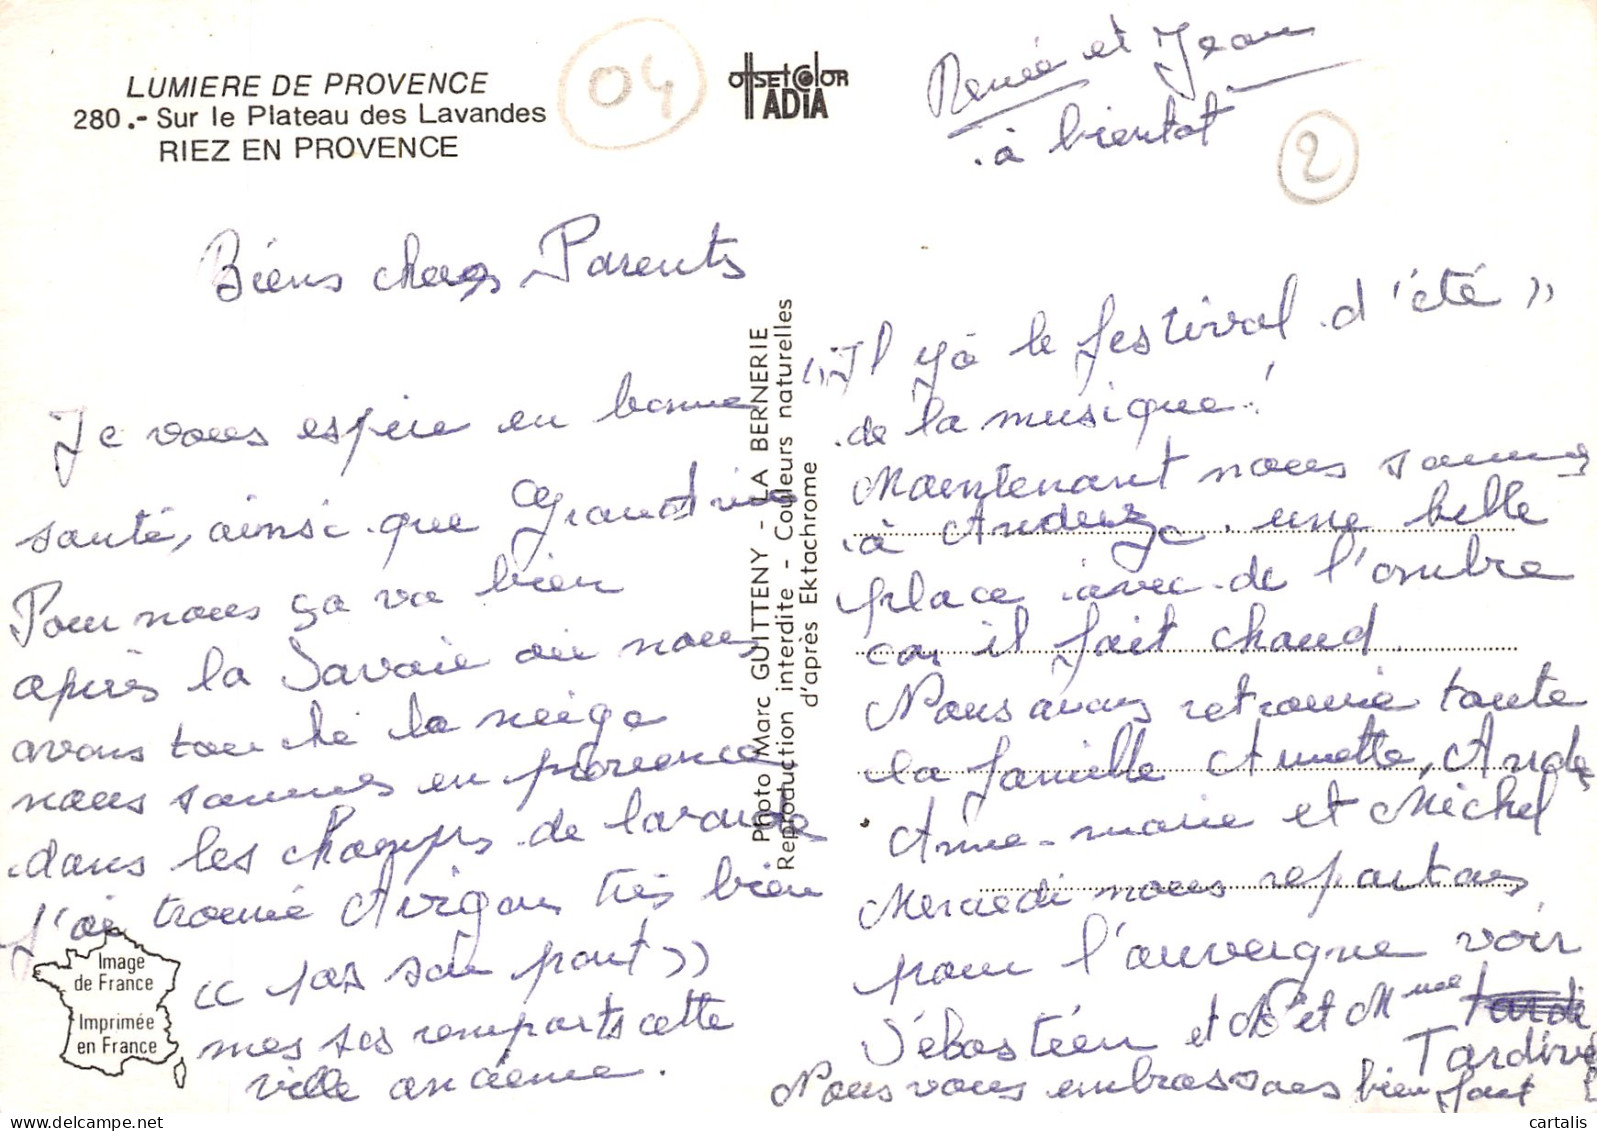 LUMIERE DE PROVENCE
280.- Sur le Plateau des Lavandes
RIEZ EN PROVENCE
04
OFFSET COLOR
IADIA
Renée et Jean
à bientot
2
Biens chers Parents
Je vous espère en bonne
santé, ainsi que Grand
Pour nous ça va bien
après la Savoie où nous
avons touché la neige
nous sommes en provence
dans les champs de lavande
J'ai trouvé Avignon très bien
"pas son pont"
mes ses remparts cette
ville ancienne.
Photo Marc GUITTENY - LA BERNERIE
Reproduction interdite - Couleurs naturelles
d'après Ektachrome
Image
de France
Imprimée
en France
"Il y à le festival d'été"
de la musique!
Maintenant nous sommes
à Anduze. une belle
place avec de l'ombre
car il fait chaud.
Nous avons retrouvé toute
la famille Annette, André
Anne-marie et Michel
Mercredi nous repartons
pour l'auvergne voir
Sébastien et Mr et Mme
Tardive
Nous vous embrassons bien fort
cartalis